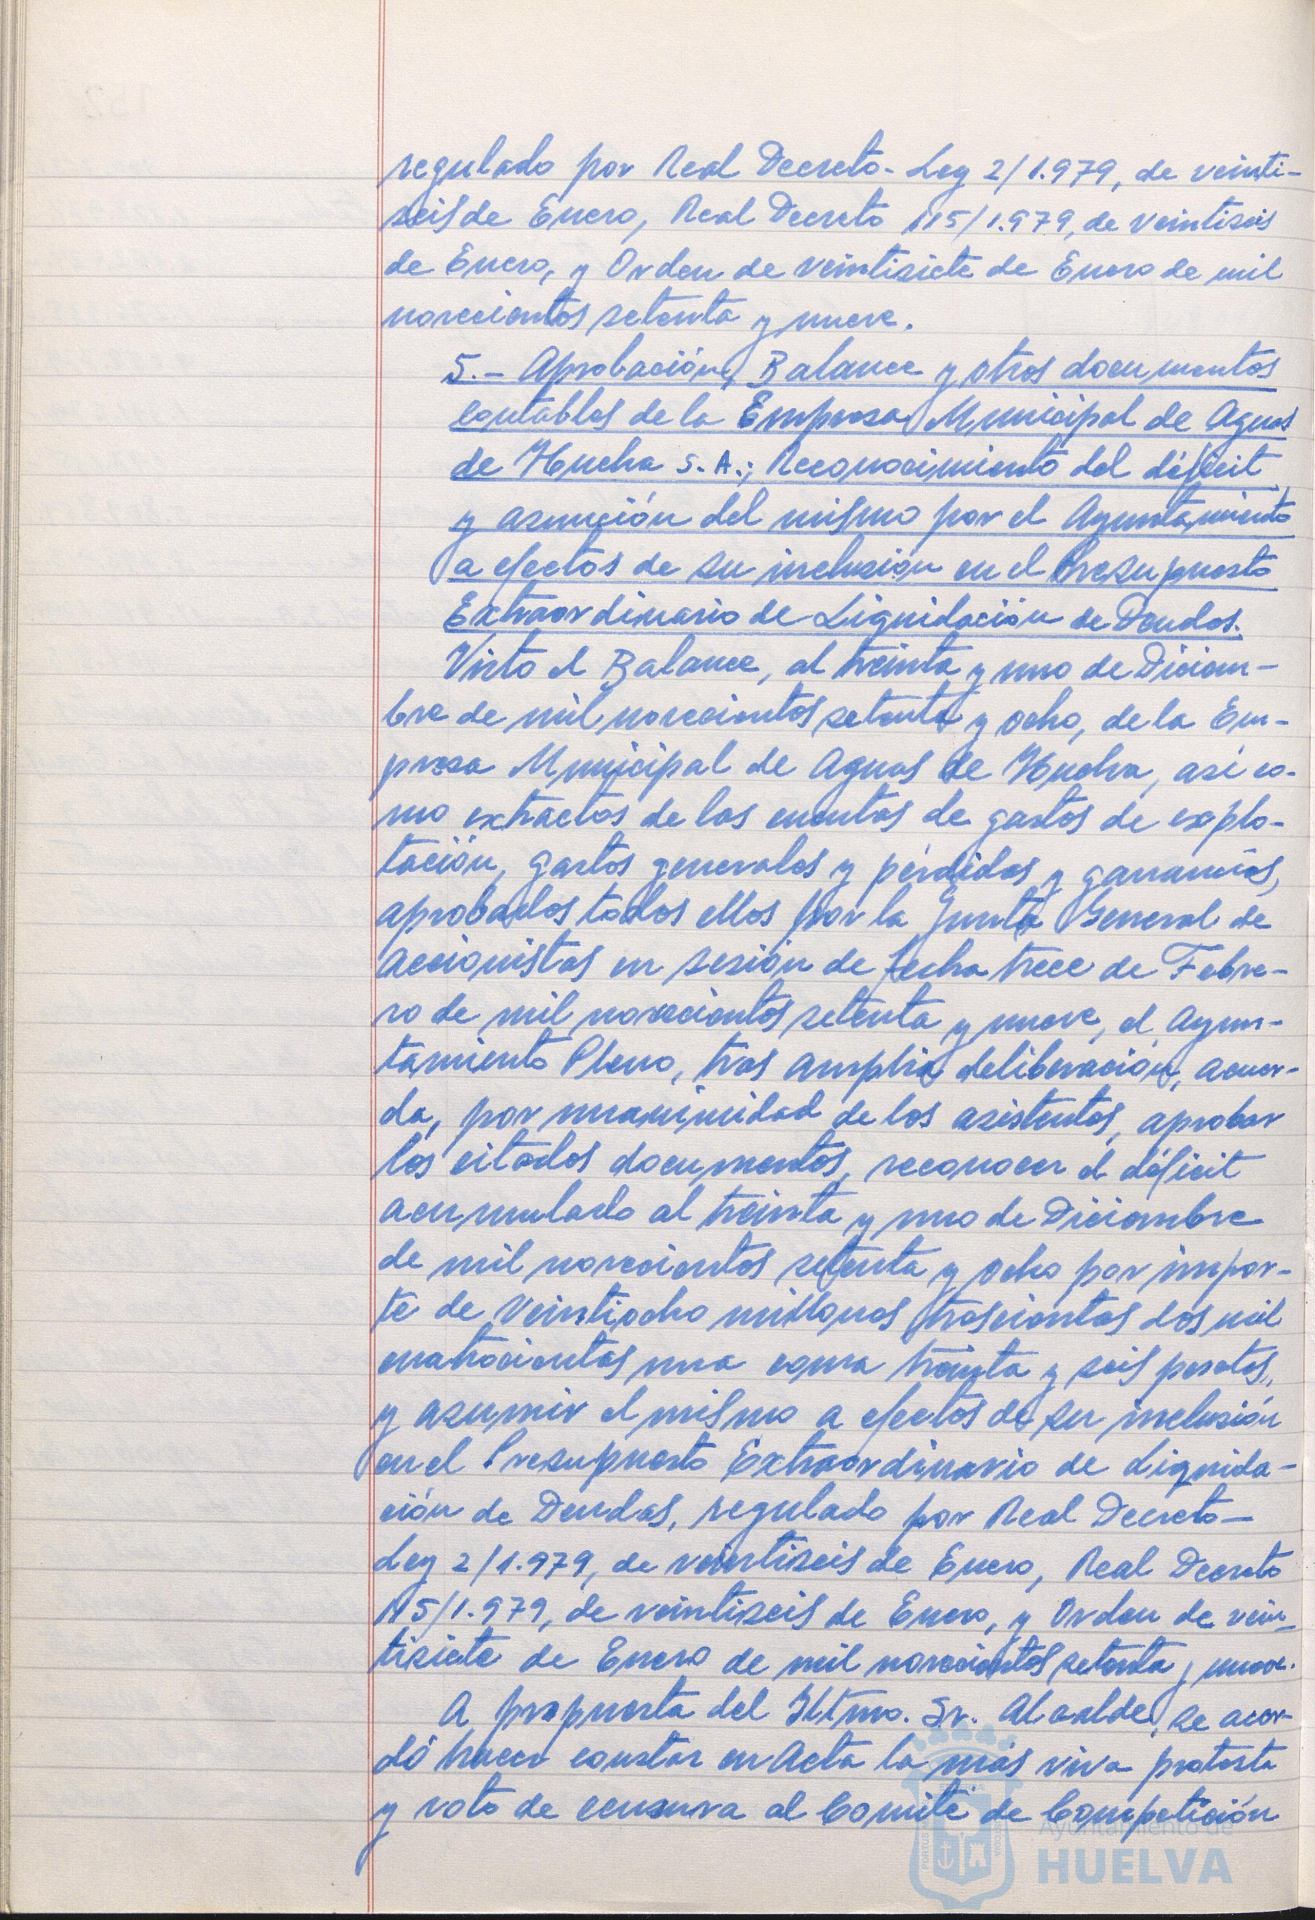 regulado por Real Decreto-Ley 2/1.979, de veinti-
seis de Enero, Real Decreto 115/1.979, de veintiseis
de Enero, y Orden de veintisiete de Enero de mil
novecientos setenta y nueve.
5.- Aprobación, Balance y otros documentos
contables de la Empresa Municipal de Aguas
de Huelva S.A.; Reconocimiento del déficit
y asunción del mismo por el Ayuntamiento
a efectos de su inclusión en el Presupuesto
Extraordinario de Liquidación de Deudas.
Visto el Balance, al treinta y uno de Diciem-
bre de mil novecientos setenta y ocho, de la Em-
presa Municipal de Aguas de Huelva, así co-
mo extractos de las cuentas de gastos de explo-
tación, gastos generales y pérdidas y ganancias,
aprobados todos ellos por la Junta General de
Accionistas en sesión de fecha trece de Febre-
ro de mil novecientos setenta y nueve, el Ayun-
tamiento Pleno, tras amplia deliberación, acuer-
da, por unanimidad de los asistentes, aprobar
los citados documentos, reconocer el déficit
acumulado al treinta y uno de Diciembre
de mil novecientos setenta y ocho por impor-
te de veintiocho millones trescientas dos mil
cuatrocientas una coma treinta y seis pesetas,
y asumir el mismo a efectos de su inclusión
en el Presupuesto Extraordinario de Liquida-
ción de Deudas, regulado por Real Decreto-
Ley 2/1.979, de veintiseis de Enero, Real Decreto
115/1.979, de veintiseis de Enero, y Orden de vein-
tisiete de Enero de mil novecientos setenta y nueve.
A propuesta del Iltmo. Sr. Alcalde, se acor-
dó hacer constar en Acta la más viva protesta
y voto de censura al Comité de Competición
Ayuntamiento de
HUELVA